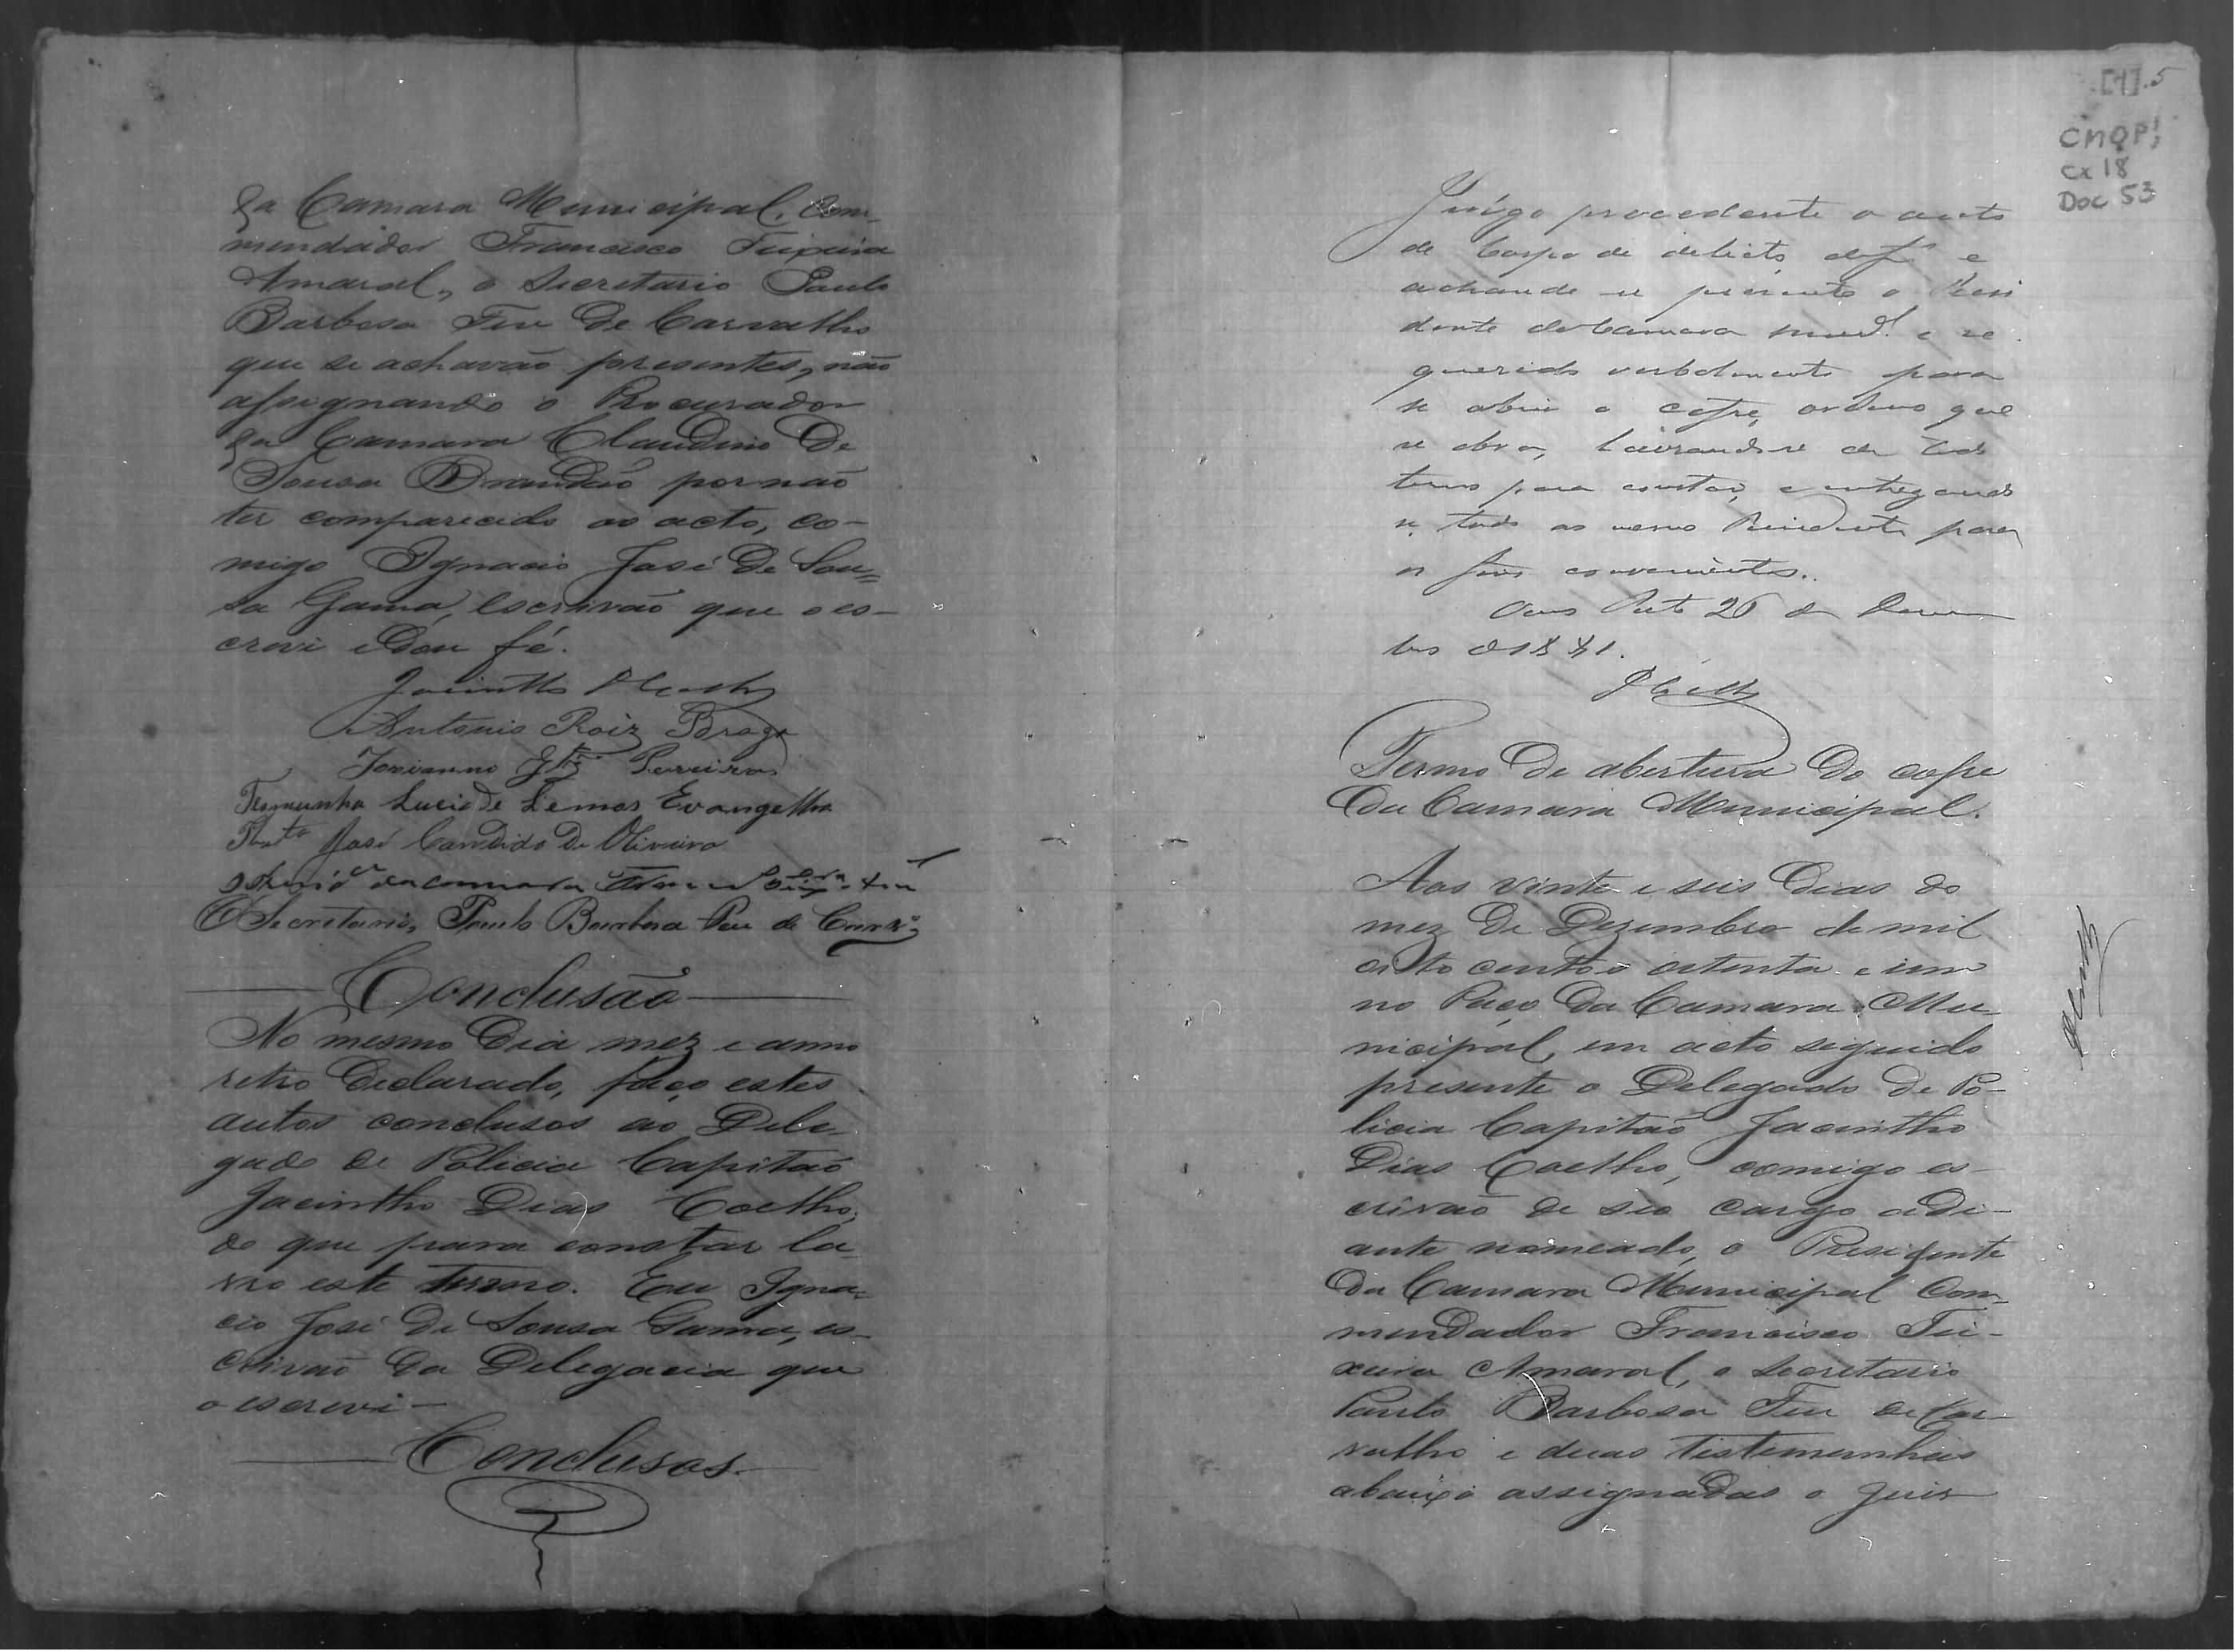 da Camara Municipal, Com-
mendador Francisco Teixeira
Amaral, o Secretario Paulo
Barbosa Feu de Carvalho
que se achavão presentes, não
assignando o Procurador
da Camara Claudino de
Sousa Brandão por não
ter comparecido ao acto, co-
migo Ignacio José de Sou=
sa Gama, Escrivão que o es-
crevi e dou fé.
Jacintho D Coelho
Antonio Roiz Braga
Pereira
Lucio de Lemos Evangelho
José Candido de Oliveira
da camara
O Secretario, Paulo Barbosa Feu de Carvo
Conclusão
No mesmo dia mez e anno
retro declarado, faço estes
autos conclusos ao Dele-
gado de Policia Capitão
Jacintho Dias Coelho,
do que para constar la-
vro este termo. Eu Igna=
cio José de Sousa Gama, es-
crivão da Delegacia que
o escrevi-
Conclusos.
[4].5
CMOP;
Cx 18
Doc 53
Julgo procedente o auto
de Corpo de delicto, e
achando se presente o Presi
dente da Camara e re
querido verbalmente para
se abrir o cofre, ordeno que
se abra, lavrando-se de tudo
termo para constar, e entregando
se tudo ao mesmo Presidente para
os fins convenientes.
Ouro Preto 26 de Dezem
bro de 1881.
DCoelho
Termo de abertura do cofre
da Camara Municipal.
Aos vinte e seis dias do
mez de Dezembro de mil
oito centos oitenta e um
no Paço da Camara Mu-
nicipal, em acto seguido
presente o Delegado de Po-
licia Capitão Jacintho
Dias Coelho, comigo es-
crivão de seo cargo adi-
ante nomeado, o Presidente
da Camara Municipal Com-
mendador Francisco Tei-
xeira Amaral, o Secretario
Paulo Barbosa Feu de Car-
valho e duas testemunhas
abaixo assignadas o Juis
DCoelho